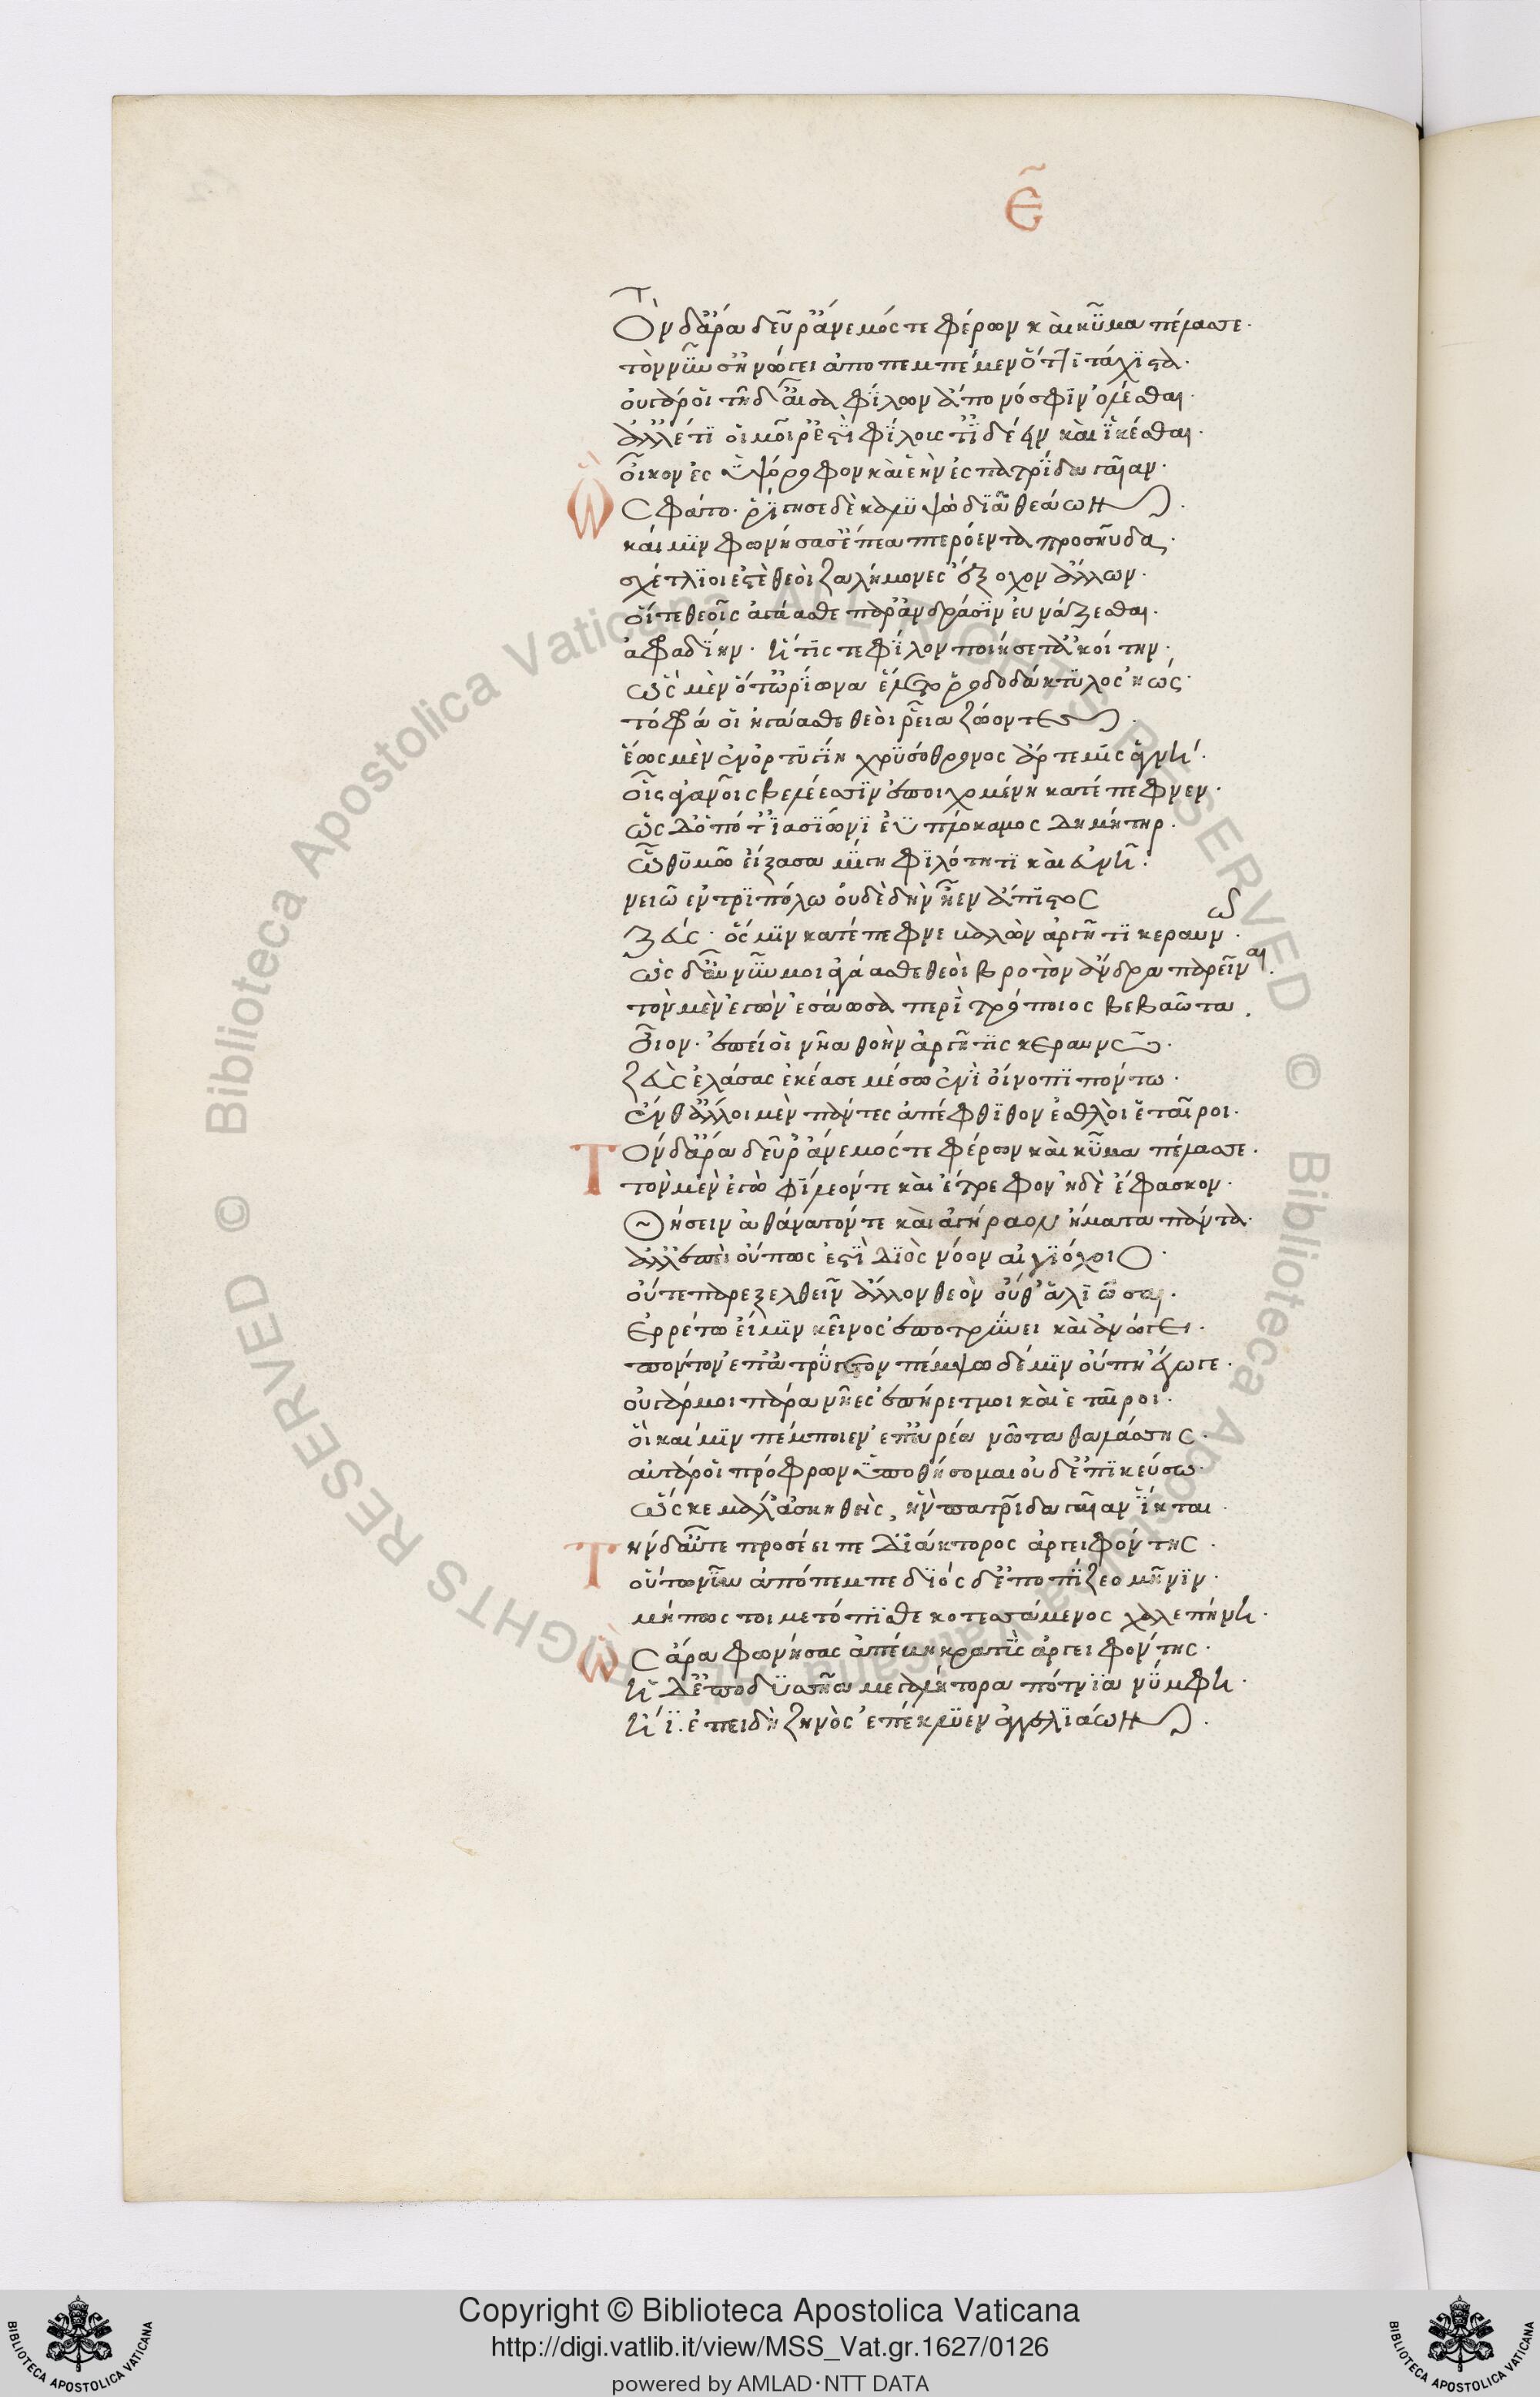 ε̃
Τὸν δ' ἄρα δεῦρ' ἄνεμός τε φέρων καὶ κῦμα πέλασσε·
τὸν νῦν σ' ἠνώγει ἀποπεμπέμεν ὅττι τάχιστα·
οὐ γάρ οἱ τῆδ' αἶσα φίλων ἀπονόσφιν ὀλέσθαι·
ἀλλ' ἔτι οἱ μοῖρ' ἐστὶ φίλους τ' ἰδέειν καὶ ἱκέσθαι·
οἶκον ἐς ὑψόροφον καὶ ἑὴν ἐς πατρίδα γαῖαν·
Ὣς φάτο· ῥίγησε δὲ καλυψὼ δῖα θεάων·
καί μιν φωνήσασ' ἔπεα πτερόεντα προσηύδα·
σχέτλιοί ἐστε θεοὶ ζηλήμονες ἔξοχον ἄλλων·
οἵτε θεαῖς ἀγάασθε παρ' ἀνδράσιν εὐνάζεσθαι·
ἀμφαδίην· ἤν τίς τε φίλον ποιήσετ' ἀκοίτην·
ὣς μὲν ὅτ' ὠρίωνα ἕλετο ῥοδοδάκτυλος ἠώς·
τόφρά οἱ ἠγάασθε θεοὶ ῥεῖα ζώοντες·
ἕως μὲν ἐν ὀρτυγίη χρυσόθρονος ἄρτεμις ἁγνή·
οἷς ἀγανοῖς βελέεσσιν ἐποιχομένη κατέπεφνεν·
ὣς δ' ὁπότ' ἰασίωνι ἐϋπλόκαμος δημήτηρ·
ᾧ θυμῷ εἴξασα μίγη φιλότητι καὶ εὐνῆ·
νειῶ ἐν τριπόλω οὐδὲ δὴν ἦεν ἄπυστος
ζεύς· ὅς μιν κατέπεφνε βαλὼν ἀργῆτι κεραυνῶ·
ὣς δ' αὖ νῦν μοι ἀγάασθε θεοὶ βροτὸν ἄνδρα παρεῖναι·
τὸν μὲν ἐγὼν ἐσάωσα περὶ τρόπιος βεβαῶτα
οἷον· ἐπεί οἱ νῆα θοὴν ἀργῆτι κεραυνῶ·
ζεὺς ἐλάσας ἐκέασε μέσω ἐνὶ οἴνοπι πόντω·
ἔνθ' ἄλλοι μὲν πάντες ἀπέφθιθον ἐσθλοὶ ἑταῖροι·
Τὸν δ' ἄρα δεῦρ' ἄνεμός τε φέρων καὶ κῦμα πέλασσε·
τὸν μὲν ἐγὼ φίλεόν τε καὶ ἔτρεφον ἠδὲ ἔφασκον·
Θήσειν ἀθάνατόν τε καὶ ἀγήραον ἤματα πάντα·
ἀλλ' ἐπεὶ οὔπως ἐστὶ Διὸς νόον αἰγιόχοιο·
οὔτε παρεξελθεῖν ἄλλον θεὸν οὔθ' ἁλιῶσαι·
ἐρρέτω εἴ μιν κεῖνος ἐποτρύνει καὶ ἀνώγει·
πόντον ἐπ' ἀτρύγετον πέμψω δέ μιν οὔπη ἔγωγε·
οὐ γάρ μοι πάρα νῆες ἐπήρετμοι καὶ ἑταῖροι·
οἵ καί μιν πέμποιεν ἐπ' εὐρέα νῶτα θαλάσσης·
αὐτάρ οἱ πρόφρων ὑποθήσομαι οὐδ' ἐπικεύσω·
ὥς κε μάλ' ἀσκηθὴς, ἣν πατρίδα γαῖαν ἵκηται·
Τὴν δ' αὖτε προσέειπε Διάκτορος ἀργειφόντης·
οὕτω νῦν ἀπόπεμπε διὸς δ' ἐποπίζεο μῆνιν·
μήπως τοι μετόπισθε κοτεσσάμενος χαλεπήνη·
Ὣς ἄρα φωνήσας ἀπέβη κρατὺς ἀργειφόντης·
ἡ Δ' ἐπ' ὀδυσσῆα μεγαλήτορα πότνια νύμφη·
ἤϊ. ἐπειδὴ ζηνὸς ἐπέκλυεν ἀγγελιάων·
Copyright © Biblioteca Apostolica Vaticana
http://digi.vatlib.it/view/MSS_Vat.gr.1627/0126
powered by AMLAD·NTT DATA